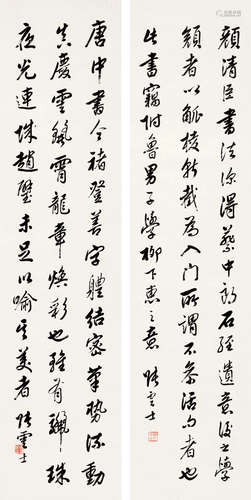 顏清臣書法深得蔡中郎石經遺意後之學
顏者以觚棱斬截為入門所謂不參活句者也
此書竊附魯男子學柳下惠之意 雲士
唐中書令褚登善字體結密筆勢流動
真慶雲飄霄龍章煥彩也雖有驪珠
夜光連城趙璧未足以喻其美者 雲士